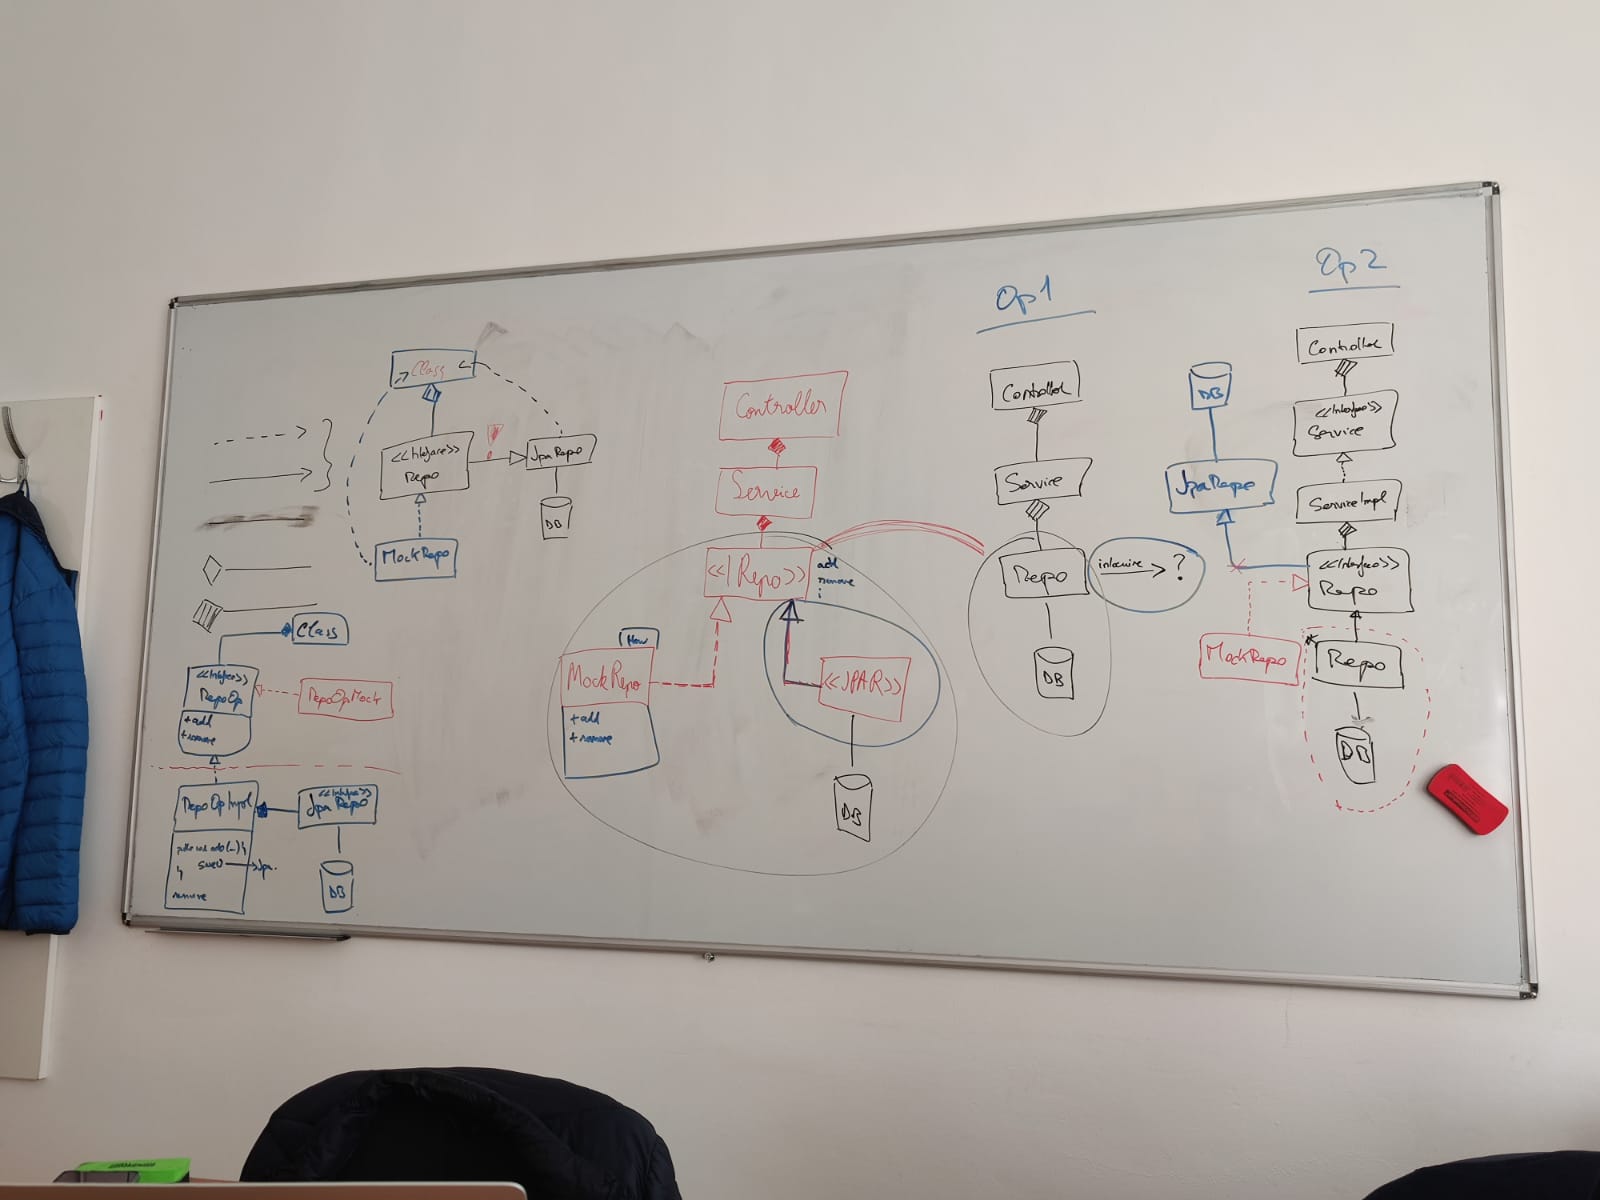 Class
<<Interface>>
Repo
JpaRepo
DB
MockRepo
Class
<<Interface>>
RepoOp
+add
+remove
RepoOpMock
RepoOpImpl
<<Interface>>
JpaRepo
DB
remove
Controller
Service
<<I Repo>>
add
remove
MockRepo
+add
+remove
<<JPAR>>
DB
Op1
Controller
Service
Repo
inlocuire → ?
DB
Op2
Controller
<<Interface>>
Service
ServiceImpl
DB
JpaRepo
<<Interface>>
Repo
MockRepo
*
Repo
DB